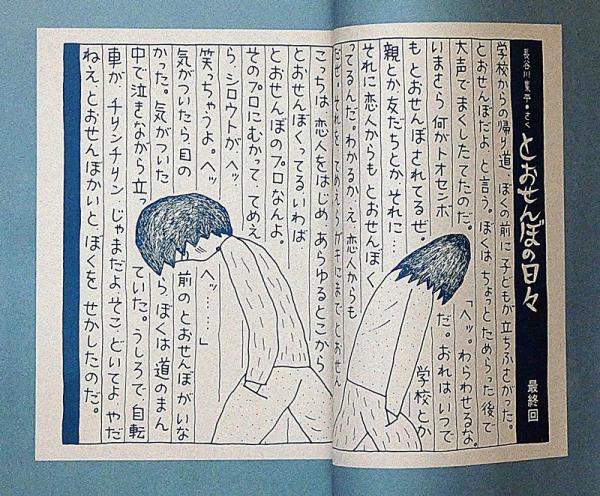 長谷川集平・さく とおせんぼの日々 最終回
学校からの帰り道、ぼくの前に子どもが立ちふさがった。
とおせんぼだよ、と言う。ぼくはちょっとためらった後で
大声でまくしたてたのだ。「ヘッ。わらわせるな。
いまさら 何がトオセンボだ。おれはいつで
も とおせんぼされてるぜ。学校とか
親とか友だちとか それに…
それに恋人からも とおせんぼく
ってるんだ。わかるか、え、恋人からも
だぜ。それを てめえらガキにまで とおせん
こっちは 恋人をはじめ あらゆるとこから
とおせんぼくってる、いわば
とおせんぼのプロなんよ。
そのプロにむかって、てめえ
ら、シロウトが、ヘッ、
笑っちゃうよ。ヘッ ヘッ……」
気がついたら目の前のとおせんぼがいな
かった。気がついたらぼくは道のまん
中で泣きながら立っていた。うしろで、自転
車が、チリンチリン、じゃまだよ、そこ、どいてよ、やだ
ねえ、とおせんぼかい、と、ぼくを せかしたのだ。